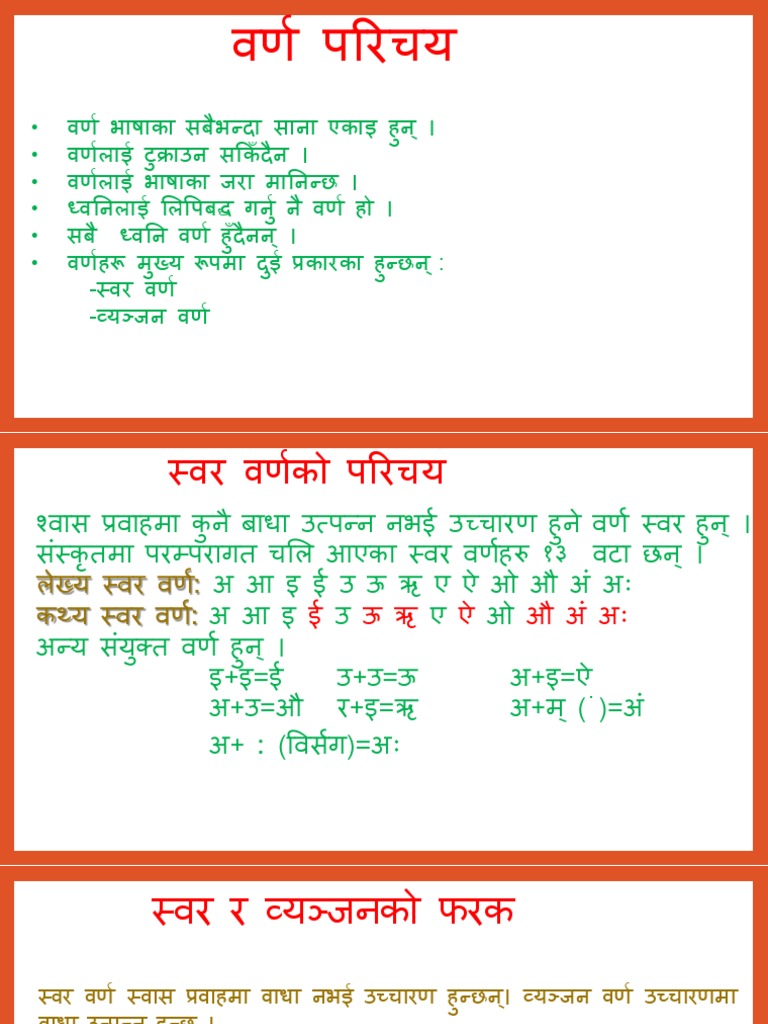 वर्ण परिचय
• वर्ण भाषाका सबैभन्दा साना एकाइ हुन् ।
• वर्णलाई टुक्राउन सकिँदैन ।
• वर्णलाई भाषाका जरा मानिन्छ ।
• ध्वनिलाई लिपिबद्ध गर्नु नै वर्ण हो ।
• सबै ध्वनि वर्ण हुँदैनन् ।
• वर्णहरू मुख्य रूपमा दुई प्रकारका हुन्छन् :
-स्वर वर्ण
-व्यञ्जन वर्ण
स्वर वर्णको परिचय
श्वास प्रवाहमा कुनै बाधा उत्पन्न नभई उच्चारण हुने वर्ण स्वर हुन् ।
संस्कृतमा परम्परागत चलि आएका स्वर वर्णहरु १३ वटा छन् ।
लेख्य स्वर वर्ण: अ आ इ ई उ ऊ ऋ ए ऐ ओ औ अं अः
कथ्य स्वर वर्ण: अ आ इ ई उ ऊ ऋ ए ऐ ओ औ अं अः
अन्य संयुक्त वर्ण हुन् ।
इ+इ=ई उ+उ=ऊ अ+इ=ऐ
अ+उ=औ र+इ=ऋ अ+म् (ं)=अं
अ+ : (विर्सग)=अः
स्वर र व्यञ्जनको फरक
स्वर वर्ण स्वास प्रवाहमा वाधा नभई उच्चारण हुन्छन्। व्यञ्जन वर्ण उच्चारणमा